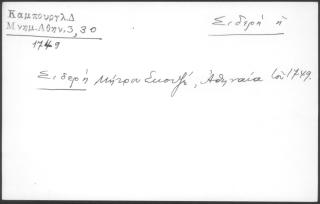 Καμπουργλ.Δ
Μνημ.Αθην.3,30
1749
Σιδερή ἡ
Σιδερή Μήτρου Σκουζέ, Ἀθηναία τοῦ 1749.